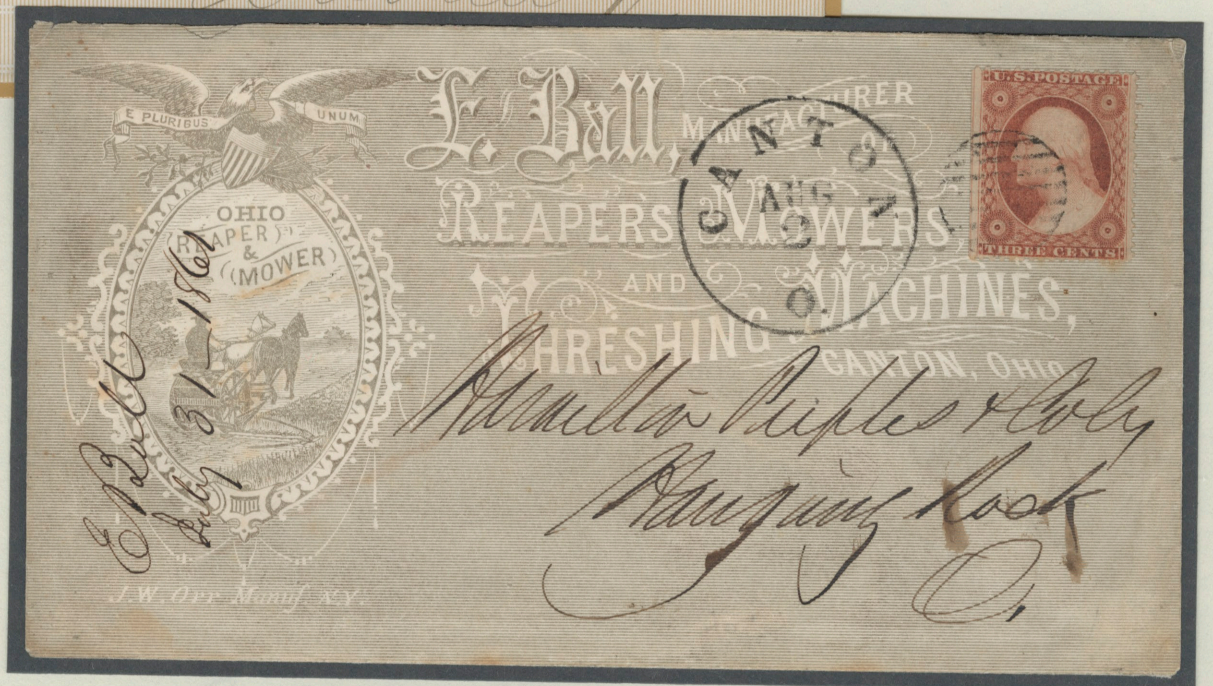 E PLURIBUS UNUM
OHIO
REAPER
&
MOWER
J.W. Orr Manuf. N.Y.
E. Ball, MANUFACTURER
OF
REAPERS, MOWERS,
AND
THRESHING MACHINES,
CANTON, OHIO
CANTON
AUG
2
O.
U.S. POSTAGE
THREE CENTS
E Ball
July 31 - 1861
Hamilton Peebles & Coly
Hanging Rock
O.